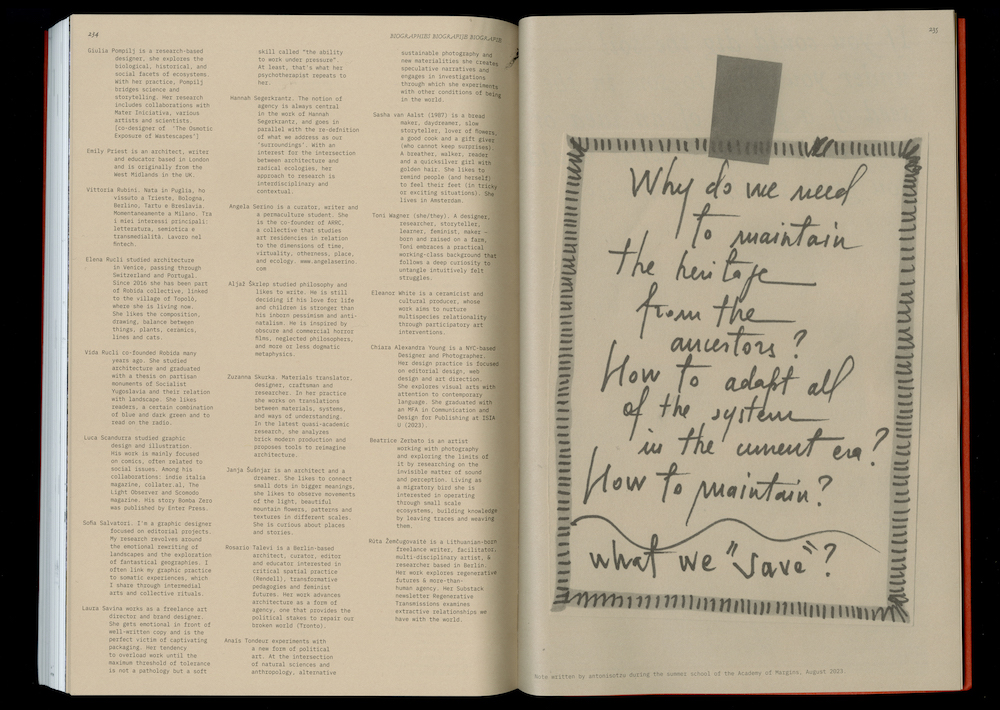 234
BIOGRAPHIES BIOGRAPIJE BIOGRAFIE
Giulia Pompilj is a research-based
designer, she explores the
biological, historical, and
social facets of ecosystems.
With her practice, Pompilj
bridges science and
storytelling. Her research
includes collaborations with
Mater Iniciativa, various
artists and scientists.
[co-designer of 'The Osmotic
Exposure of Wastescapes']
Emily Priest is an architect, writer
and educator based in London
and is originally from the
West Midlands in the UK.
Vittoria Rubini. Nata in Puglia, ho
vissuto a Trieste, Bologna,
Berlino, Tartu e Breslavia.
Momentaneamente a Milano. Tra
i miei interessi principali:
letteratura, semiotica e
transmedialità. Lavoro nel
fintech.
Elena Rucli studied architecture
in Venice, passing through
Switzerland and Portugal.
Since 2016 she has been part
of Robida collective, linked
to the village of Topolò,
where she is living now.
She likes the composition,
drawing, balance between
things, plants, ceramics,
lines and cats.
Vida Rucli co-founded Robida many
years ago. She studied
architecture and graduated
with a thesis on partisan
monuments of Socialist
Yugoslavia and their relation
with landscape. She likes
readers, a certain combination
of blue and dark green and to
read on the radio.
Luca Scandurra studied graphic
design and illustration.
His work is mainly focused
on comics, often related to
social issues. Among his
collaborations: indie italia
magazine, collater.al, The
Light Observer and Scomodo
magazine. His story Bomba Zero
was published by Enter Press.
Sofia Salvatori. I'm a graphic designer
focused on editorial projects.
My research revolves around
the emotional rewriting of
landscapes and the exploration
of fantastical geographies. I
often link my graphic practice
to somatic experiences, which
I share through intermedial
arts and collective rituals.
Laura Savina works as a freelance art
director and brand designer.
She gets emotional in front of
well-written copy and is the
perfect victim of captivating
packaging. Her tendency
to overload work until the
maximum threshold of tolerance
is not a pathology but a soft
skill called "the ability
to work under pressure".
At least, that's what her
psychotherapist repeats to
her.
Hannah Segerkrantz. The notion of
agency is always central
in the work of Hannah
Segerkrantz, and goes in
parallel with the re-definition
of what we address as our
'surroundings'. With an
interest for the intersection
between architecture and
radical ecologies, her
approach to research is
interdisciplinary and
contextual.
Angela Serino is a curator, writer and
a permaculture student. She
is the co-founder of ARRC,
a collective that studies
art residencies in relation
to the dimensions of time,
virtuality, otherness, place,
and ecology. www.angelaserino.
com
Aljaž Škrlep studied philosophy and
likes to write. He is still
deciding if his love for life
and children is stronger than
his inborn pessimism and anti-
natalism. He is inspired by
obscure and commercial horror
films, neglected philosophers,
and more or less dogmatic
metaphysics.
Zuzanna Skurka. Materials translator,
designer, craftsman and
researcher. In her practice
she works on translations
between materials, systems,
and ways of understanding.
In the latest quasi-academic
research, she analyzes
brick modern production and
proposes tools to reimagine
architecture.
Janja Šušnjar is an architect and a
dreamer. She likes to connect
small dots in bigger meanings,
she likes to observe movements
of the light, beautiful
mountain flowers, patterns and
textures in different scales.
She is curious about places
and stories.
Rosario Talevi is a Berlin-based
architect, curator, editor
and educator interested in
critical spatial practice
(Rendell), transformative
pedagogies and feminist
futures. Her work advances
architecture as a form of
agency, one that provides the
political stakes to repair our
broken world (Tronto).
Anaïs Tondeur experiments with
a new form of political
art. At the intersection
of natural sciences and
anthropology, alternative
sustainable photography and
new materialities she creates
speculative narratives and
engages in investigations
through which she experiments
with other conditions of being
in the world.
Sasha van Aalst (1987) is a bread
maker, daydreamer, slow
storyteller, lover of flowers,
a good cook and a gift giver
(who cannot keep surprises).
A breather, walker, reader
and a quicksilver girl with
golden hair. She likes to
remind people (and herself)
to feel their feet (in tricky
or exciting situations). She
lives in Amsterdam.
Toni Wagner (she/they). A designer,
researcher, storyteller,
learner, feminist, maker —
born and raised on a farm,
Toni embraces a practical
working-class background that
follows a deep curiosity to
untangle intuitively felt
struggles.
Eleanor White is a ceramicist and
cultural producer, whose
work aims to nurture
multispecies relationality
through participatory art
interventions.
Chiara Alexandra Young is a NYC-based
Designer and Photographer.
Her design practice is focused
on editorial design, web
design and art direction.
She explores visual arts with
attention to contemporary
language. She graduated with
an MFA in Communication and
Design for Publishing at ISIA
U (2023).
Beatrice Zerbato is an artist
working with photography
and exploring the limits of
it by researching on the
invisible matter of sound
and perception. Living as
a migratory bird she is
interested in operating
through small scale
ecosystems, building knowledge
by leaving traces and weaving
them.
Rūta Žemčugovaitė is a Lithuanian-born
freelance writer, facilitator,
multi-disciplinary artist, &
researcher based in Berlin.
Her work explores regenerative
futures & more-than-
human agency. Her Substack
newsletter Regenerative
Transmissions examines
extractive relationships we
have with the world.
235
Why do we need
to maintain
the heritage
from the
ancestors?
How to adapt all
of the system
in the current era?
How to maintain?
what we "save"?
Note written by antonisotzu during the summer school of the Academy of Margins, August 2023.